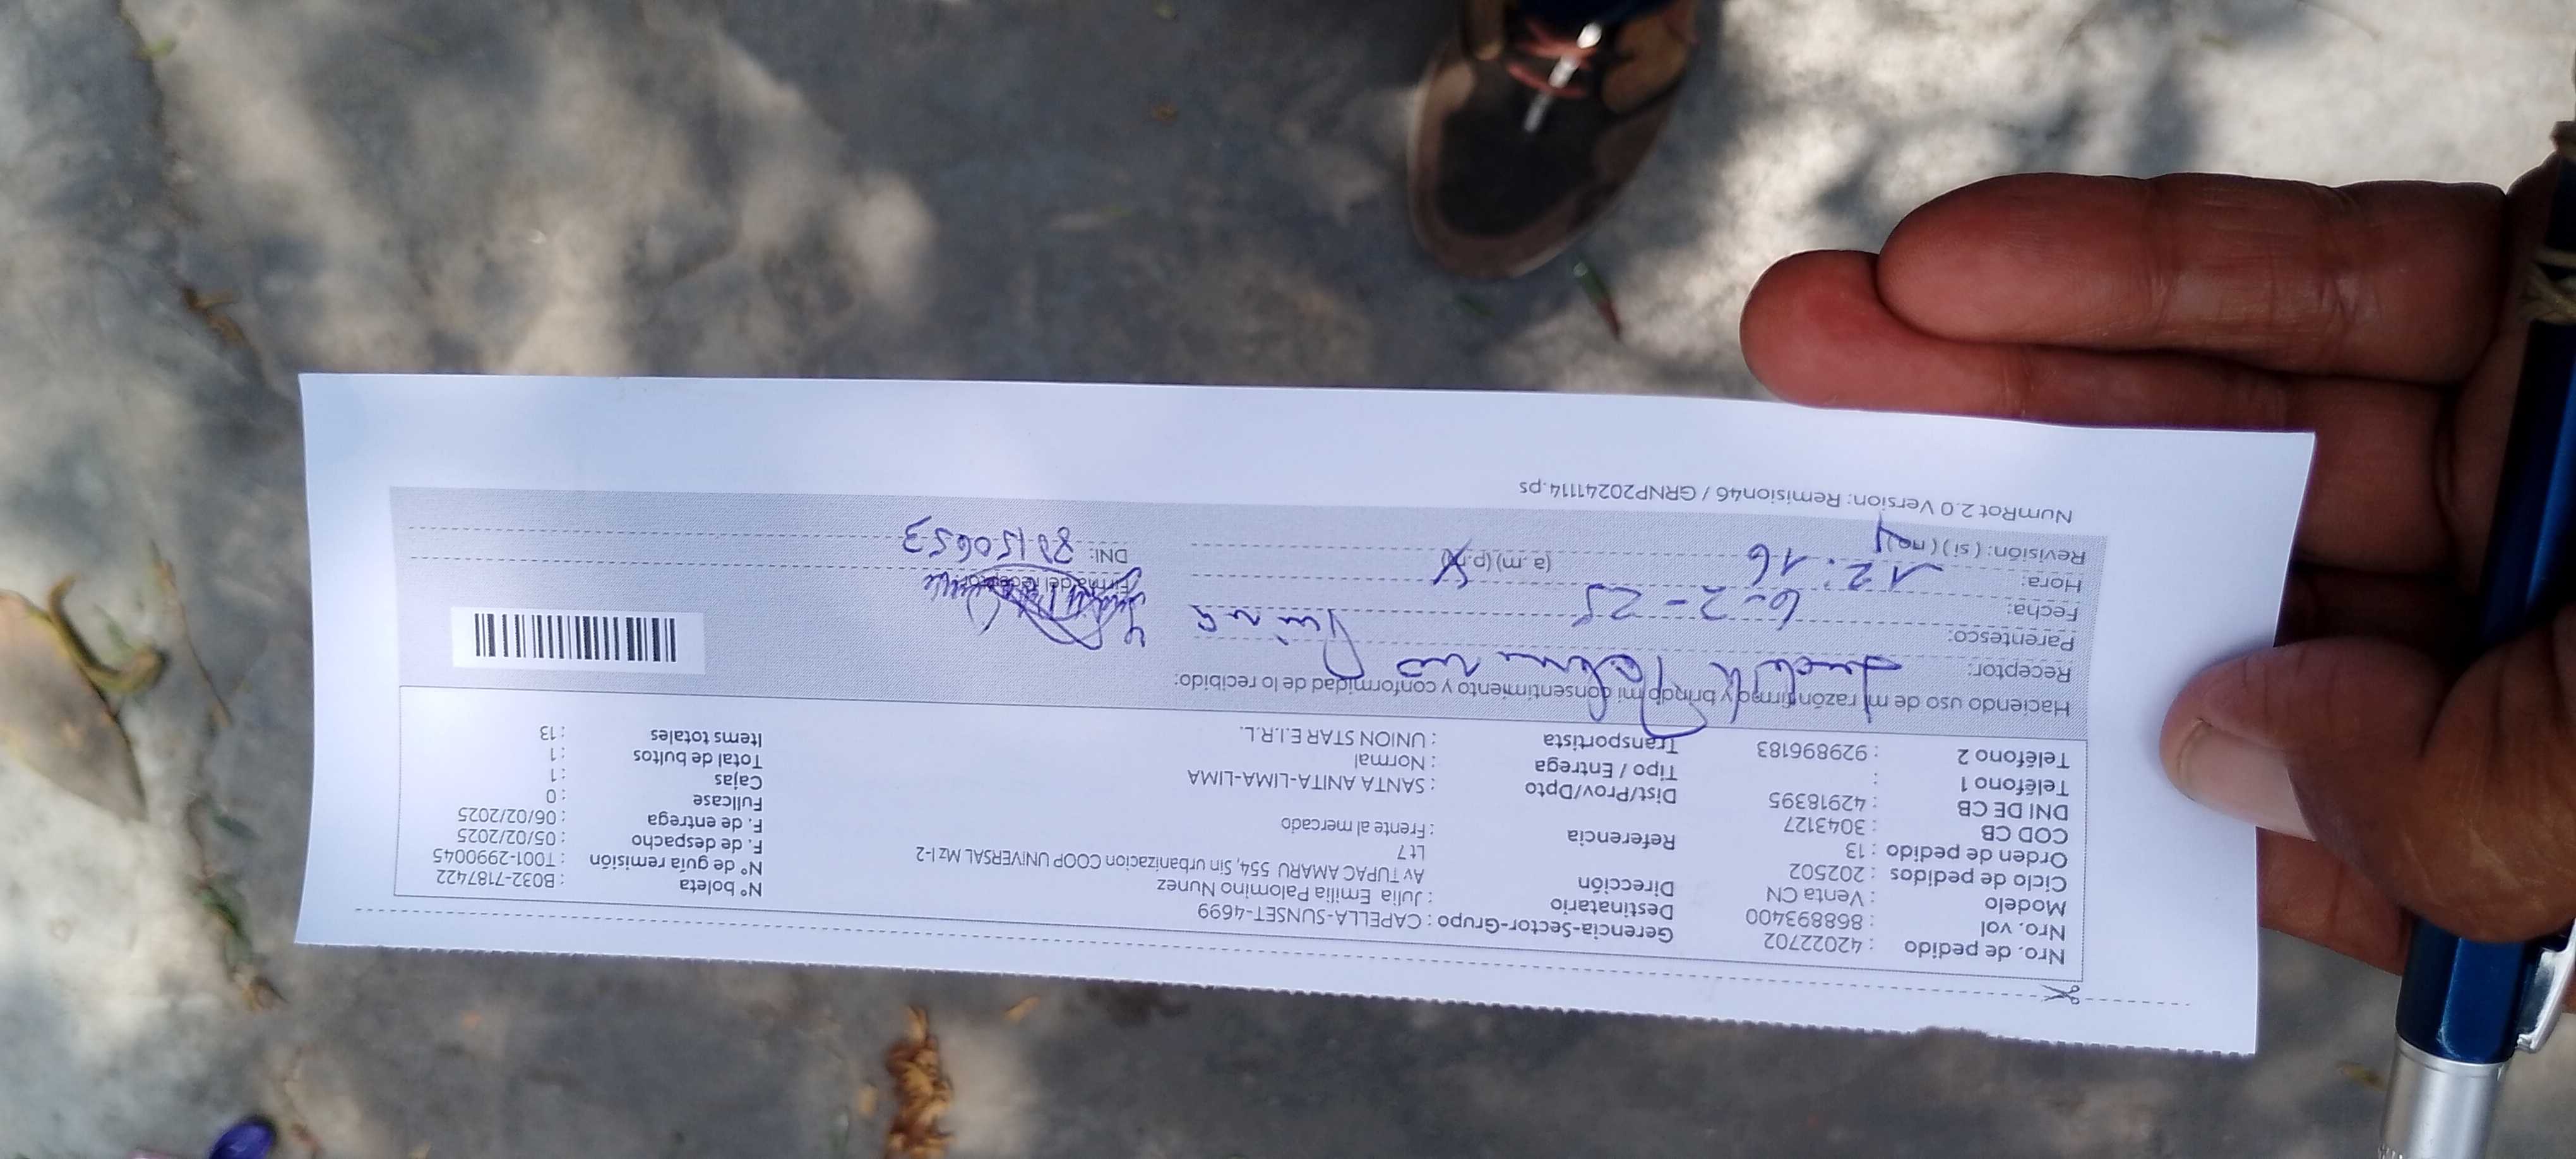 Nro. de pedido : 42022702
Nro. vol : 868893400
Modelo : Venta CN
Ciclo de pedidos : 202502
Orden de pedido : 13
COD CB : 3043127
DNI DE CB : 42918395
Teléfono 1 :
Teléfono 2 : 929896183
Gerencia-Sector-Grupo : CAPELLA-SUNSET-4699
Destinatario : Julia Emilia Palomino Nunez
Dirección Av TUPAC AMARU 554, Sin urbanizacion COOP UNIVERSAL Mz I-2
Lt 7
Referencia : Frente al mercado
Dist/Prov/Dpto : SANTA ANITA-LIMA-LIMA
Tipo / Entrega : Normal
Transportista : UNION STAR E.I.R.L.
Nº boleta : B032-7187422
Nº de guía remisión : T001-2990045
F. de despacho : 05/02/2025
F. de entrega : 06/02/2025
Fullcase : 0
Cajas : 1
Total de bultos : 1
Items totales : 13
Haciendo uso de mi razón firmo y brindo mi consentimiento y conformidad de lo recibido:
Receptor: Palomino
Parentesco:
Fecha: 6-2-25
Hora: 12:16 (a.m) (p.m)
Revisión: (si) (no)
Firma del receptor
DNI: 80150653
NumRot 2.0 Version: Remision46 / GRNP20241114.ps